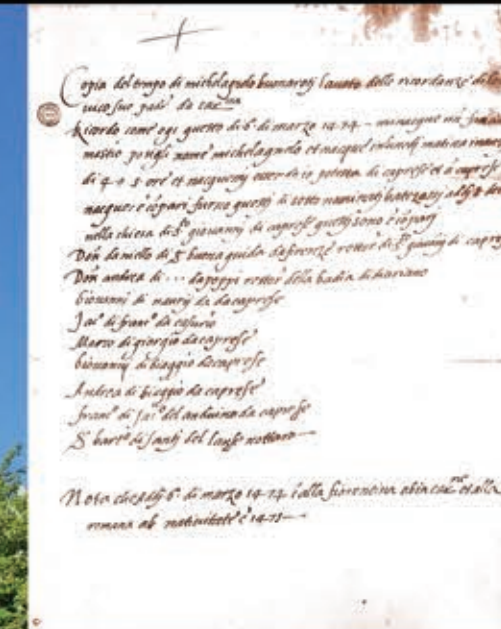 Copia del tempo di michelagnolo buonarotj Cavato delle ricordanze di
suo pad^e da
Ricordo come ogi questo dì 6° di marzo 1474 - mi nacque un
mastio posigli nome michelagnolo et nacque in lunedj matina
di 4 o 5 ore et nacquemj essendo io potestà di caprese et a caprese
nacque: e copari furno questj di sotto naminatj batezatj addj 8
nella chiesa di S^to giovannj di caprese questj sono e coparj
Don daniello di S buonaguida da firenze rettor di S^to giovannj di caprese
Don andrea di ... da poppi rettor della badia di diariano
Giovannj di nannj da caprese
Jac° di franc° da casurio
Marco di giorgio da caprese
Giovannj di biaggio da caprese
Andrea di biaggio da caprese
franc° di jac° del anduino da caprese
S bart° di santj del lanse nottaro
Nota che addj 6° di marzo 1474 è alla fiorentina et alla
romana ab nativitate è 1475